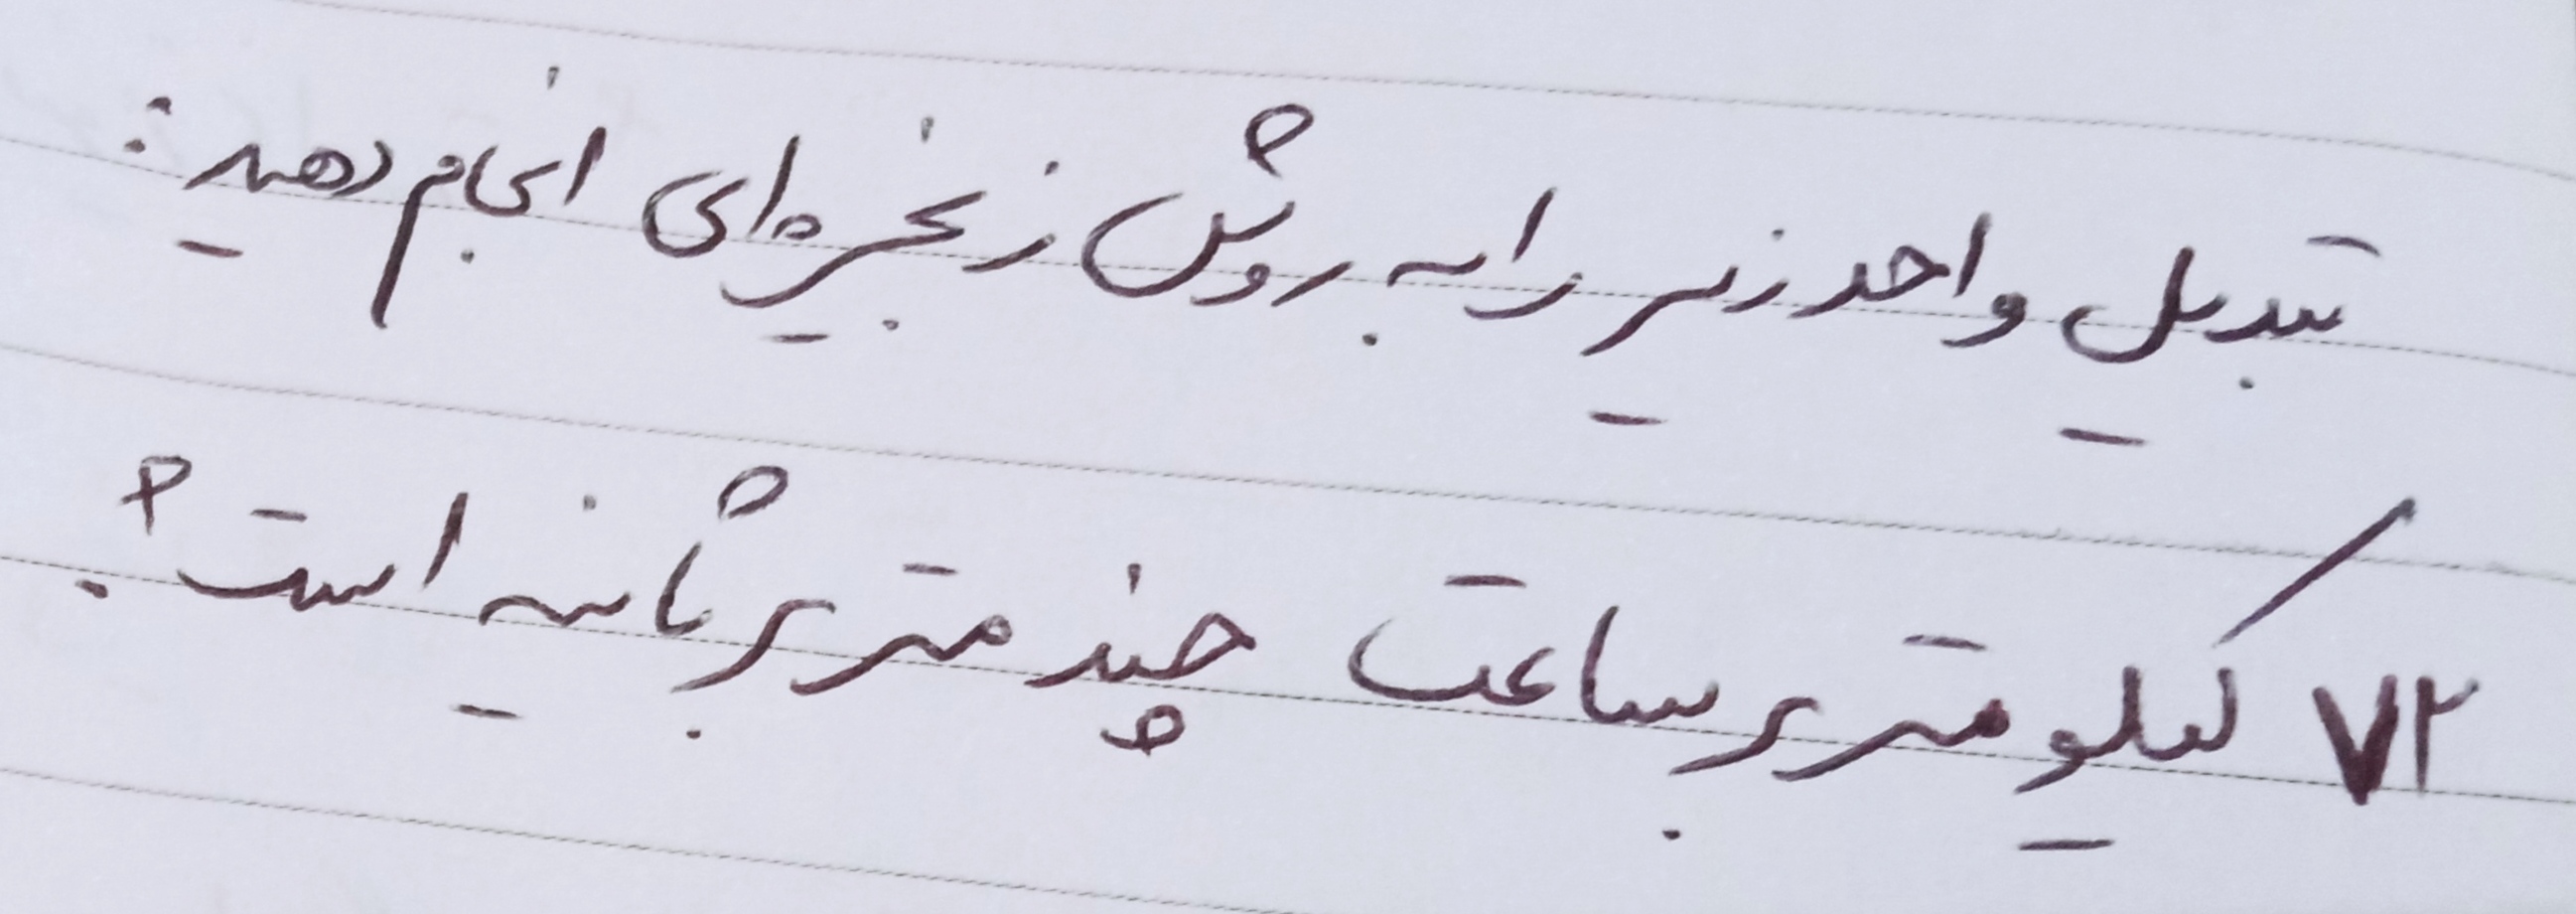 تبدیل واحد زیر را به روش زنجیره‌ای انجام دهید:
۷۲ کیلومتر بر ساعت چند متر بر ثانیه است؟